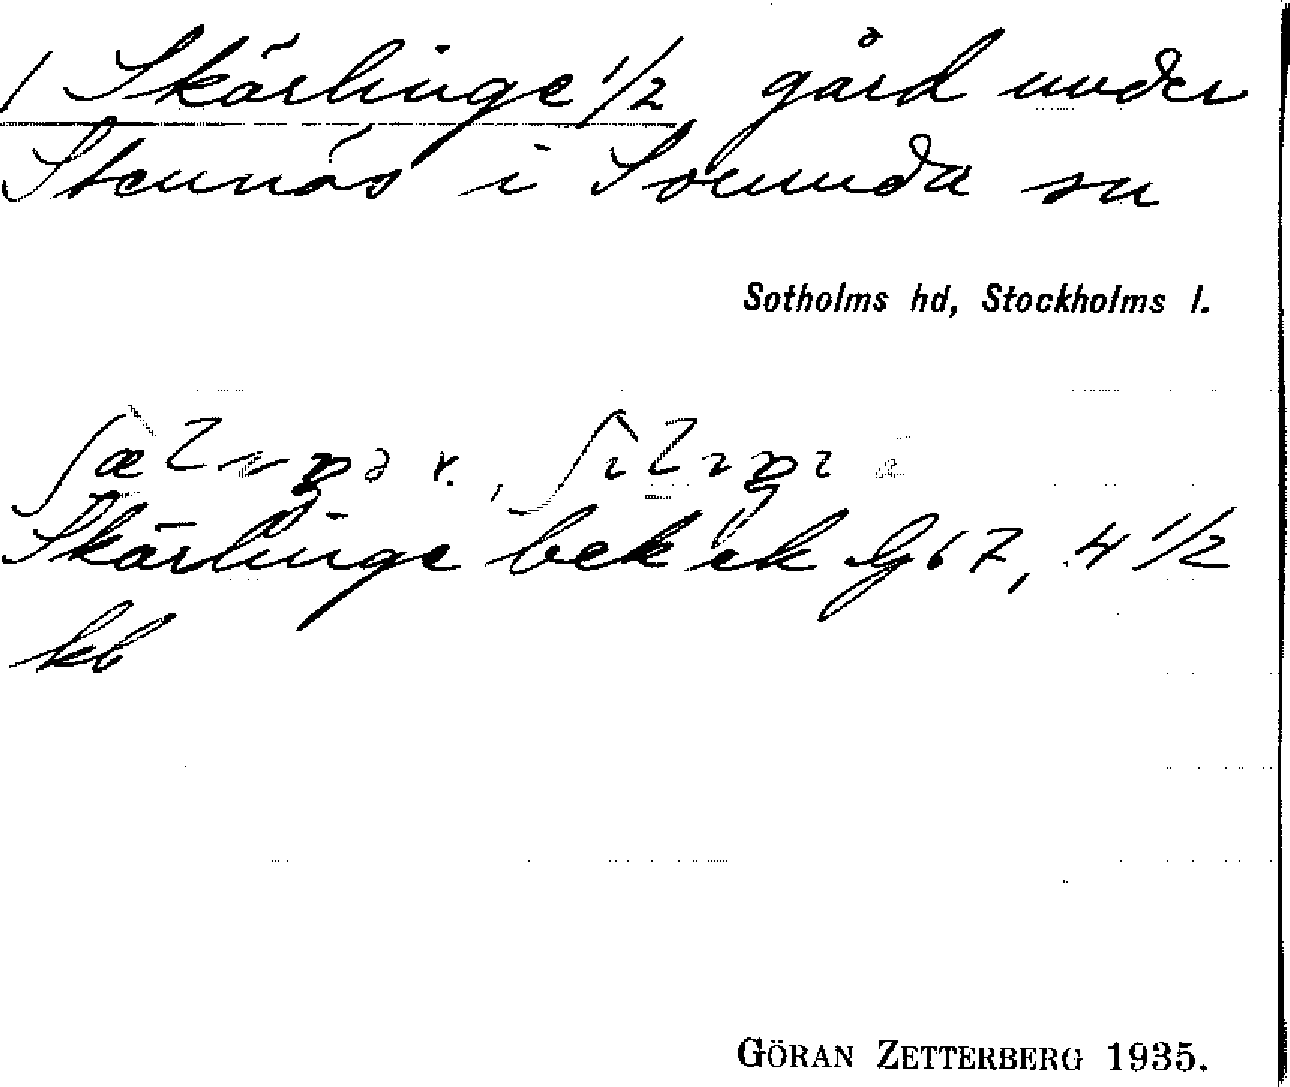 / Skärlinge 1/2 gård under
Stennäs i Sorunda sn
Sotholms hd, Stockholms l.
Skärlinge bek ek G67, 4 1/2
kb
GÖRAN ZETTERBERG 1935.